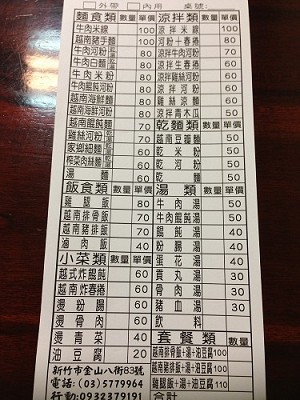 □外帶 □內用 桌號:
麵食類 數量 單價 涼拌類 數量 單價
牛肉米線 100 涼拌米線 100
越南豬手麵 100 河粉+春捲 80
牛肉河粉 80 涼拌牛肉河粉 70
牛肉白麵 80 涼拌生春捲 60
牛肉米粉 80 涼拌雞絲河粉 60
牛肉餛飩河粉 80 涼拌河粉 60
越南海鮮麵 80 雞絲涼麵 60
越南海鮮河粉 80 涼拌青木瓜 50
越南餛飩麵 70 乾麵類 數量 單價
雞絲河粉 70 越南豆瓣麵 50
家鄉細麵 60 乾米粉 50
榨菜肉絲麵 60 乾河粉 50
湯麵 60 乾麵 50
飯食類 數量 單價 湯類 數量 單價
雞腿飯 80 牛肉湯 50
越南排骨飯 70 牛肉餛飩湯 50
越南豬排飯 70 餛飩湯 40
滷肉飯 40 粉腸湯 40
小菜類 數量 單價 蛋花湯 40
越式炸餛飩 60 貢丸湯 30
越南炸春捲 60 骨肉湯 40
燙粉腸 60 豬血湯 30
燙骨肉 60 飲料
燙青菜 40 套餐類
油豆腐 20 越南排骨飯+湯+油豆腐 100
新竹市金山八街83號 越南豬排飯+湯+油豆腐 100
電話:(03)5779964 雞腿飯+湯+油豆腐 110
行動:0932379191 合計